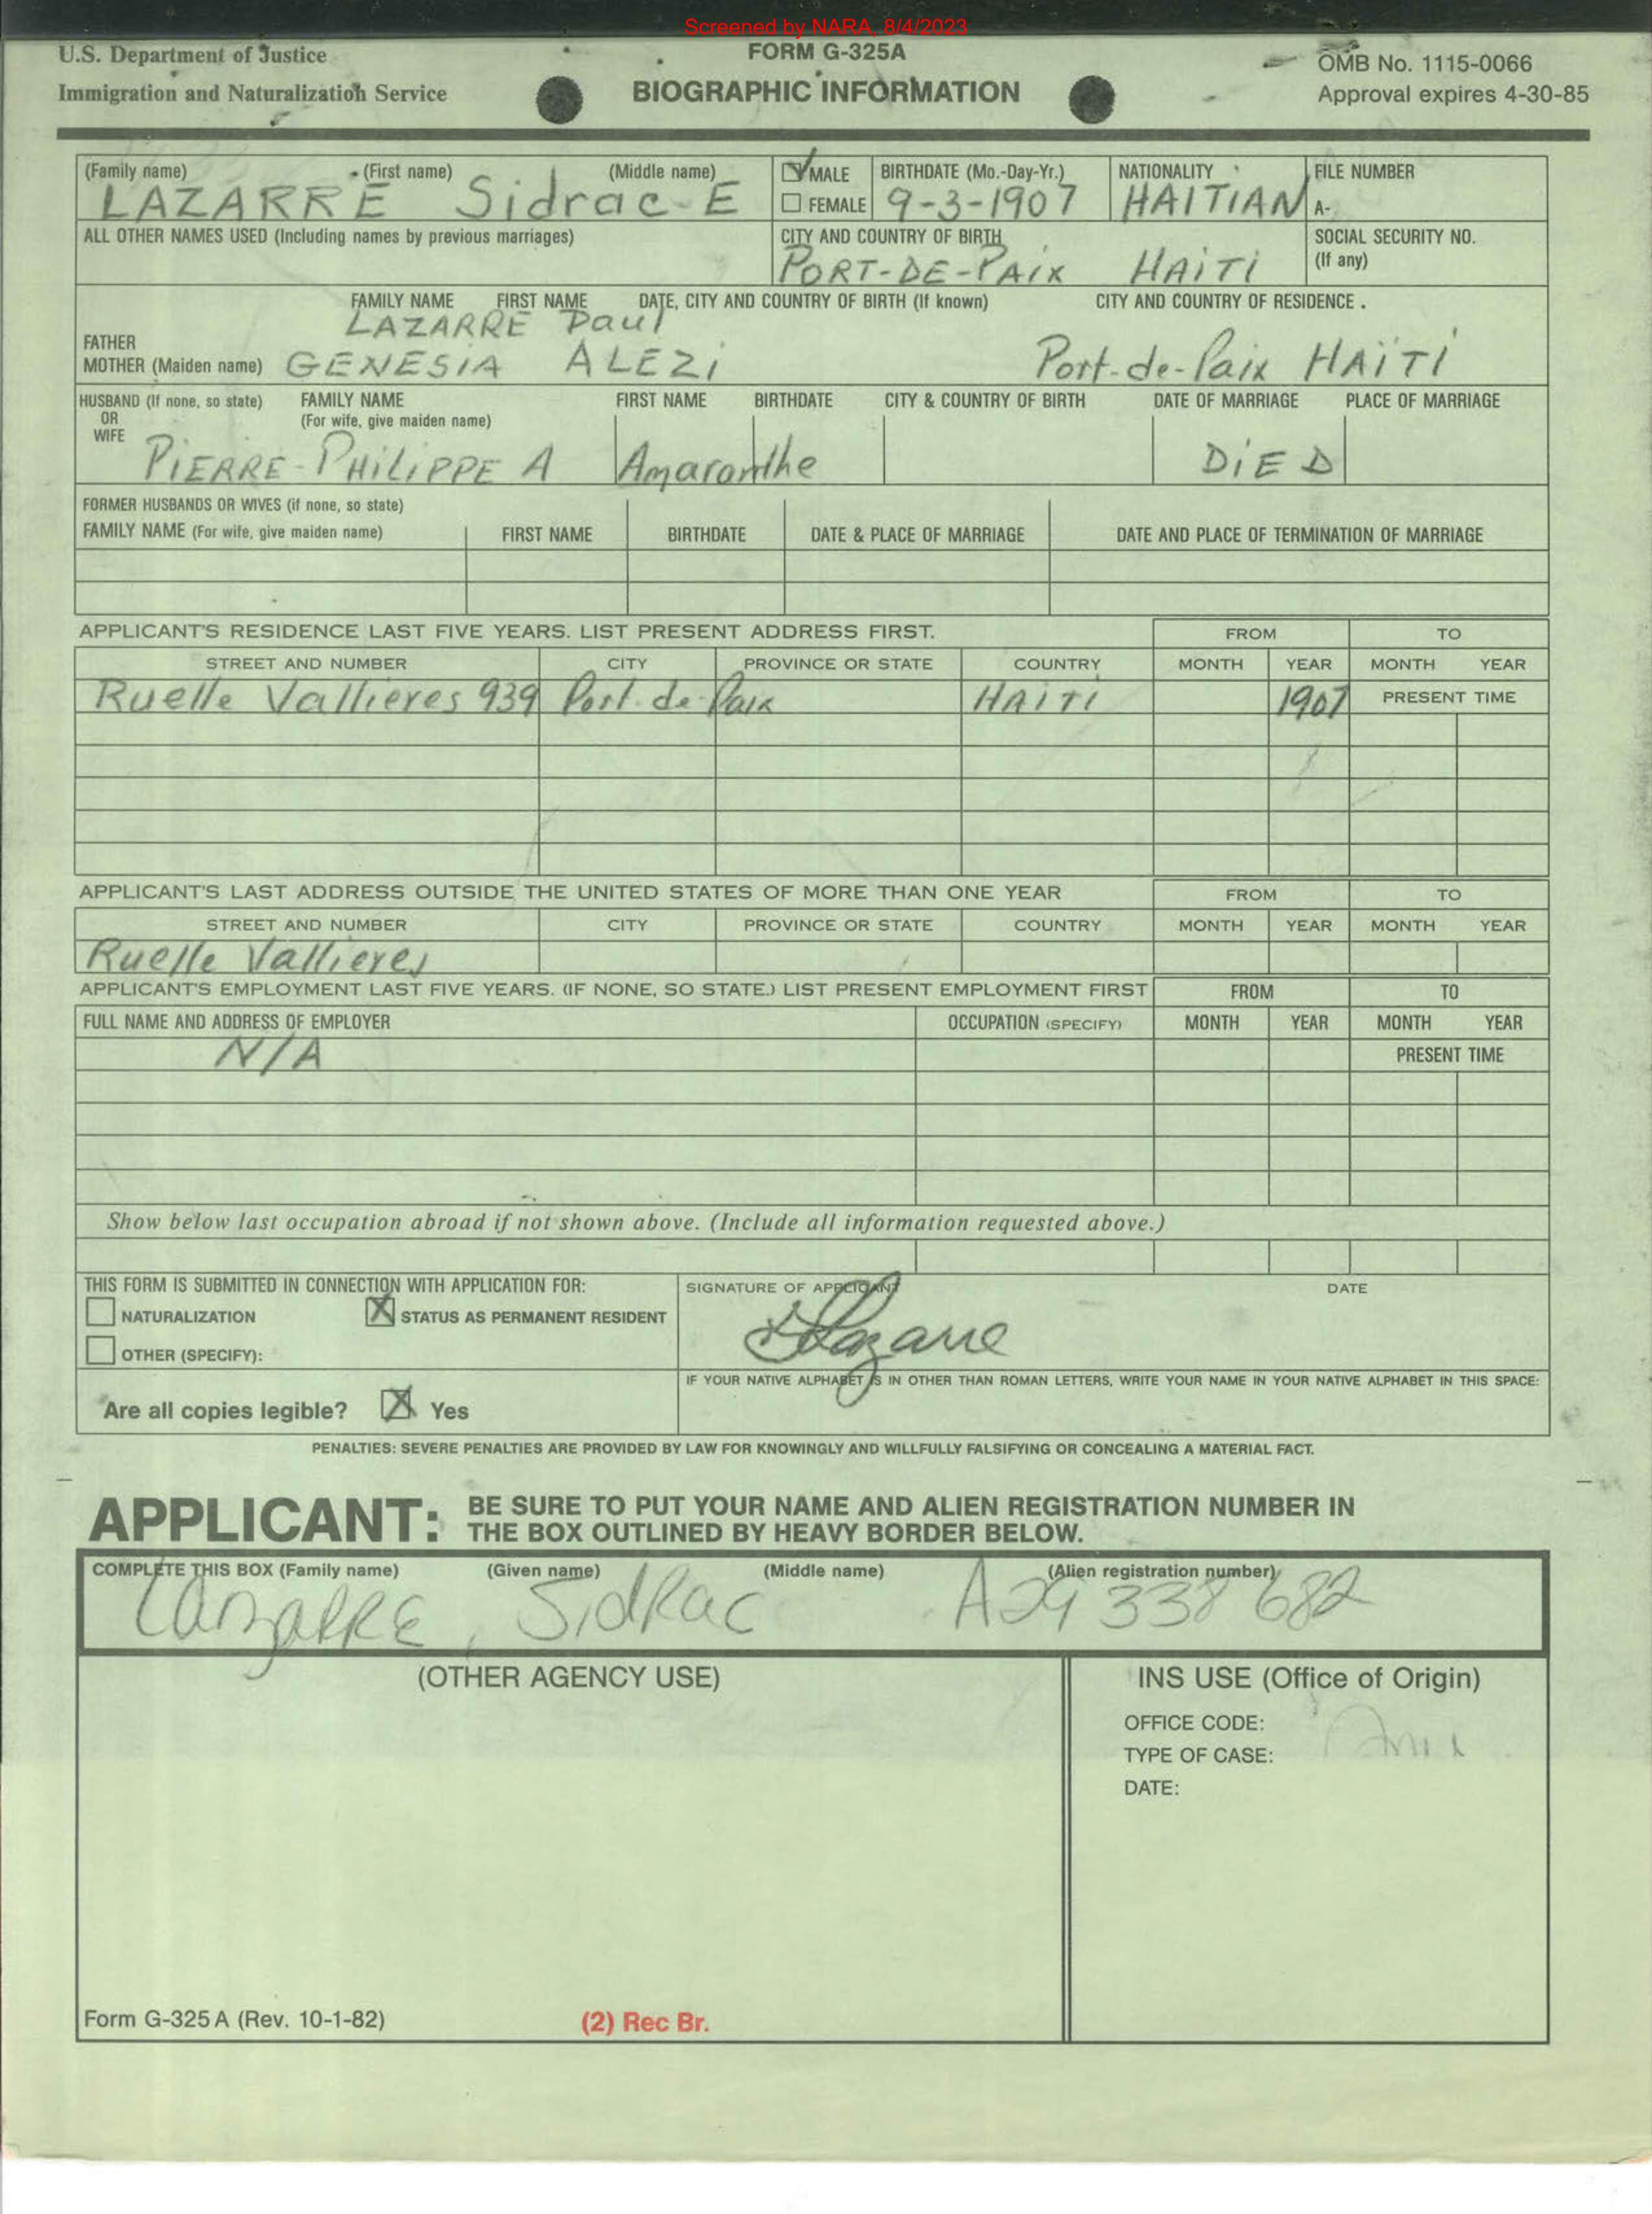 Screened by NARA, 8/4/2023
U.S. Department of Justice
Immigration and Naturalization Service
FORM G-325A
BIOGRAPHIC INFORMATION
OMB No. 1115-0066
Approval expires 4-30-85
(Family name) (First name) (Middle name) MALE BIRTHDATE (Mo.-Day-Yr.) NATIONALITY FILE NUMBER
LAZARRE Sidrac E FEMALE 9-3-1907 HAITIAN A-
ALL OTHER NAMES USED (Including names by previous marriages) CITY AND COUNTRY OF BIRTH SOCIAL SECURITY NO.
PORT-DE-PAIX HAITI (If any)
FAMILY NAME FIRST NAME DATE, CITY AND COUNTRY OF BIRTH (If known) CITY AND COUNTRY OF RESIDENCE .
LAZARRE Paul
FATHER
MOTHER (Maiden name) GENESIA ALEZI Port-de-Paix HAÏTI
HUSBAND (If none, so state) FAMILY NAME FIRST NAME BIRTHDATE CITY & COUNTRY OF BIRTH DATE OF MARRIAGE PLACE OF MARRIAGE
OR (For wife, give maiden name)
WIFE
PIERRE-PHILIPPE A Amaranthe DIED
FORMER HUSBANDS OR WIVES (if none, so state)
FAMILY NAME (For wife, give maiden name) FIRST NAME BIRTHDATE DATE & PLACE OF MARRIAGE DATE AND PLACE OF TERMINATION OF MARRIAGE
APPLICANT'S RESIDENCE LAST FIVE YEARS. LIST PRESENT ADDRESS FIRST. FROM TO
STREET AND NUMBER CITY PROVINCE OR STATE COUNTRY MONTH YEAR MONTH YEAR
Ruelle Vallieres 939 Port-de-Paix HAITI 1907 PRESENT TIME
APPLICANT'S LAST ADDRESS OUTSIDE THE UNITED STATES OF MORE THAN ONE YEAR FROM TO
STREET AND NUMBER CITY PROVINCE OR STATE COUNTRY MONTH YEAR MONTH YEAR
Ruelle Vallieres
APPLICANT'S EMPLOYMENT LAST FIVE YEARS. (IF NONE, SO STATE.) LIST PRESENT EMPLOYMENT FIRST FROM TO
FULL NAME AND ADDRESS OF EMPLOYER OCCUPATION (SPECIFY) MONTH YEAR MONTH YEAR
N/A PRESENT TIME
Show below last occupation abroad if not shown above. (Include all information requested above.)
THIS FORM IS SUBMITTED IN CONNECTION WITH APPLICATION FOR: SIGNATURE OF APPLICANT DATE
NATURALIZATION X STATUS AS PERMANENT RESIDENT
Lazarre
OTHER (SPECIFY):
IF YOUR NATIVE ALPHABET IS IN OTHER THAN ROMAN LETTERS, WRITE YOUR NAME IN YOUR NATIVE ALPHABET IN THIS SPACE:
Are all copies legible? X Yes
PENALTIES: SEVERE PENALTIES ARE PROVIDED BY LAW FOR KNOWINGLY AND WILLFULLY FALSIFYING OR CONCEALING A MATERIAL FACT.
APPLICANT: BE SURE TO PUT YOUR NAME AND ALIEN REGISTRATION NUMBER IN
THE BOX OUTLINED BY HEAVY BORDER BELOW.
COMPLETE THIS BOX (Family name) (Given name) (Middle name) (Alien registration number)
LazaRRE, SidRac A29 338 682
(OTHER AGENCY USE) INS USE (Office of Origin)
OFFICE CODE:
TYPE OF CASE:
DATE:
Form G-325 A (Rev. 10-1-82) (2) Rec Br.